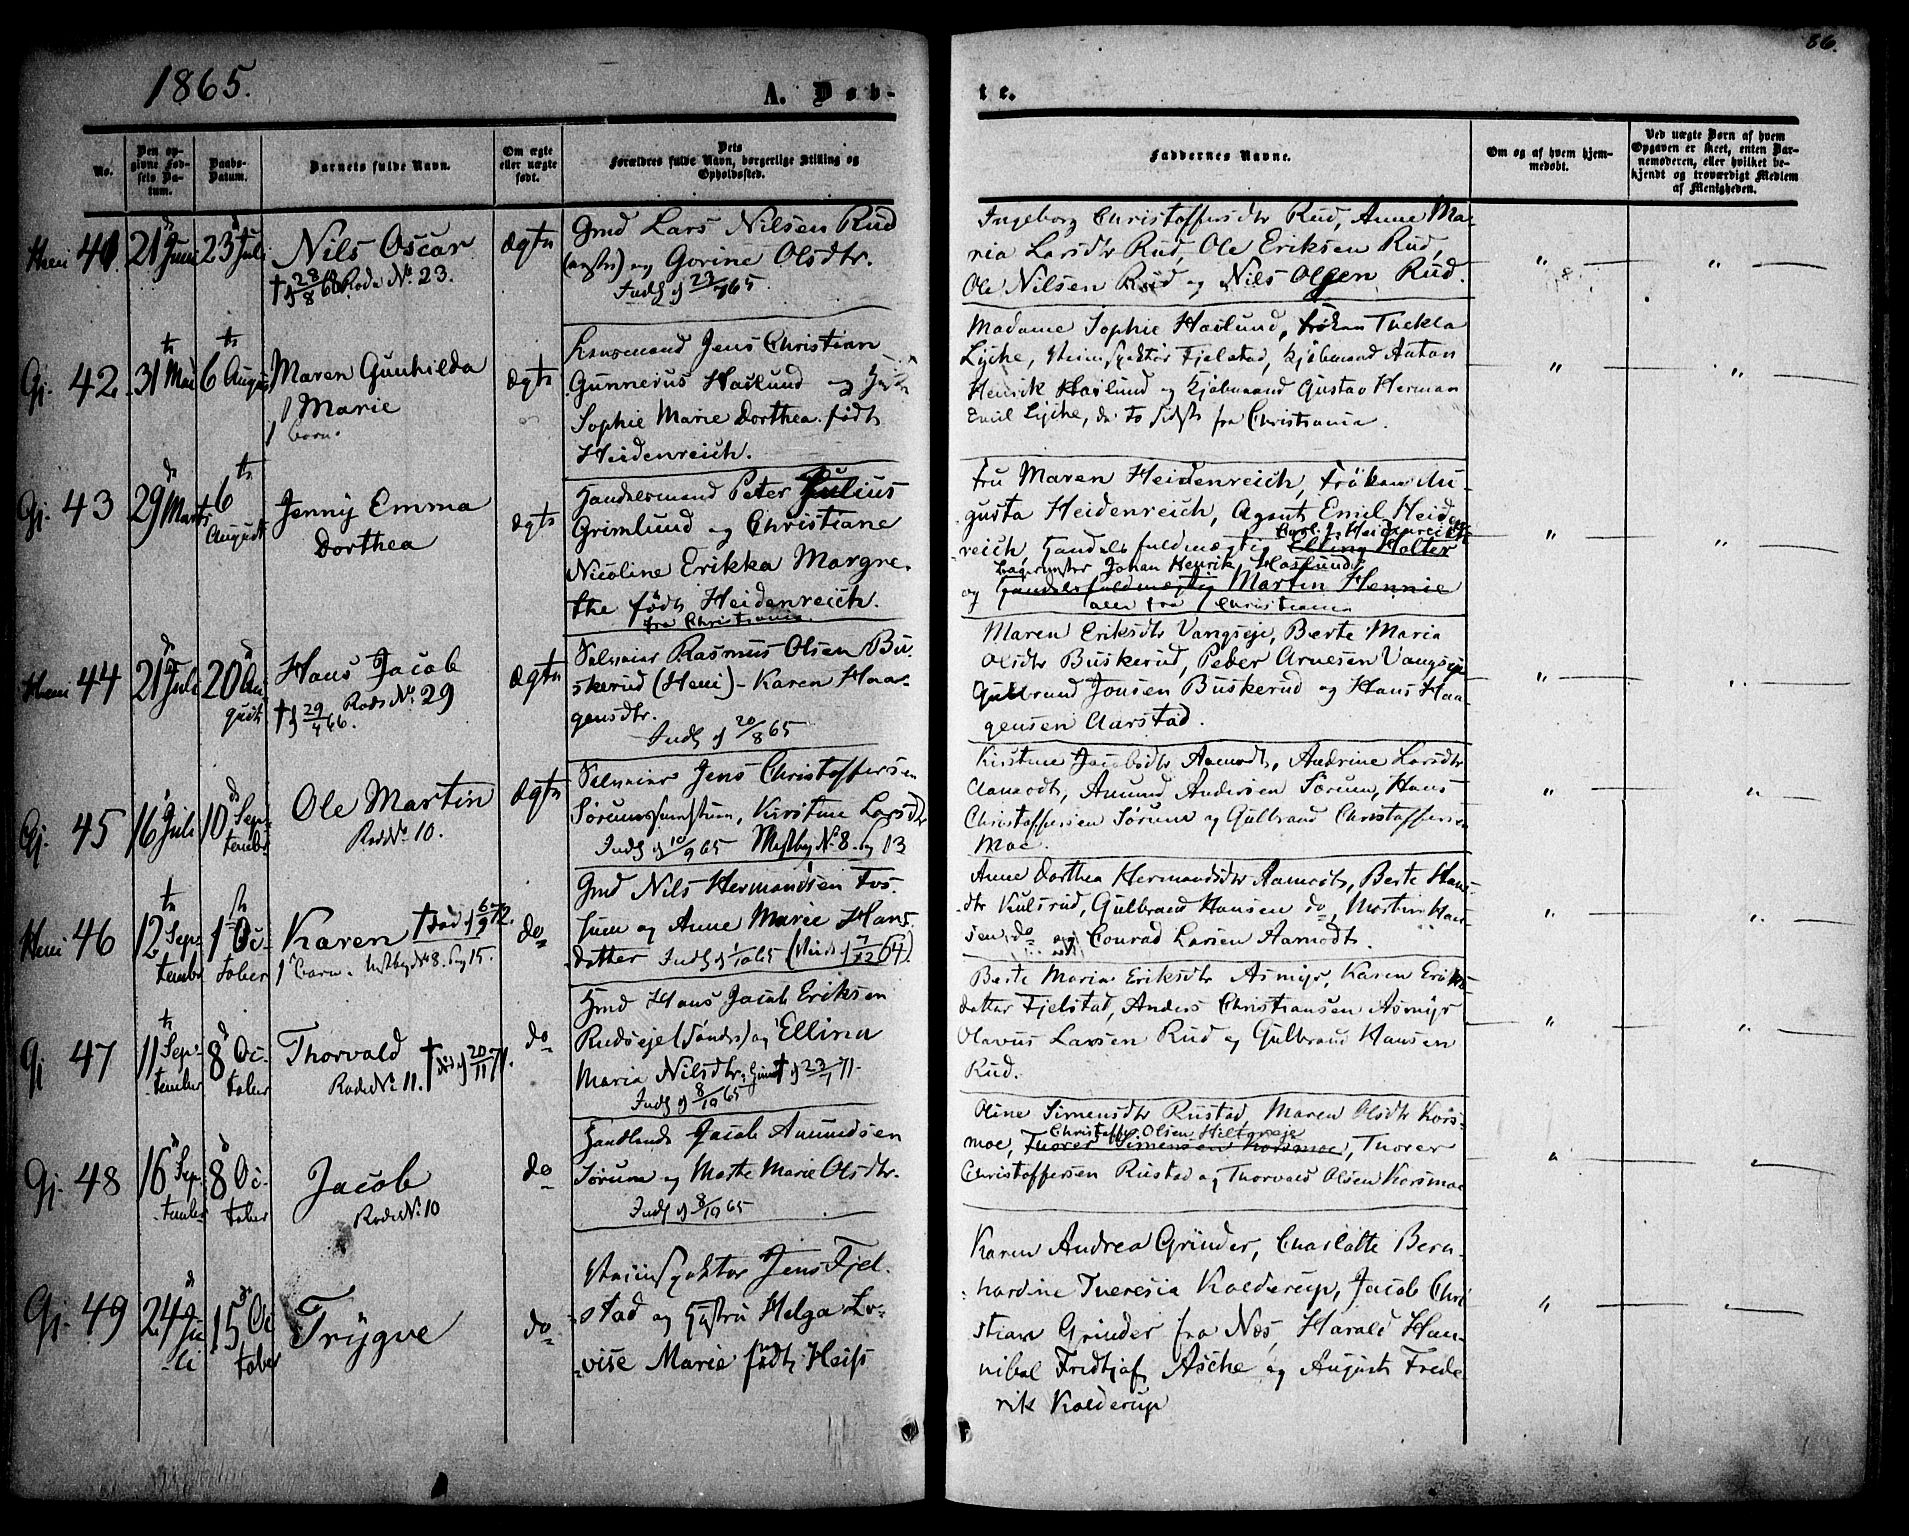 1865.
A. Døb-
te.
86.
No.
Den op-
givne Fød-
sels Da-
tum.
Daabs-
Datum.
Barnets fulde Navn.
Om ægte
eller uægte
født.
Dets
Forældres fulde Navn, borgerlige Stilling og
Opholdssted.
Faddernes Navne.
Om og af hvem hjem-
medøbt.
Ved uægte Børn af hvem
Opgaven er skeet, enten Bar-
nemoderen, eller hvilket be-
kjendt og troværdigt Medlem
af Menigheden.
Heni 41. 21 Juni 23 Juli
Nils Oscar
Rode No. 23.
ægte
Gmd Lars Nilsen Rud
og Gorine Olsdtr.
Indf. 23/7 65
Ingeborg Christoffersdtr Rud, Anne Ma-
ria Larsdtr Rud, Ole Eriksen Rud,
Ole Nilsen Rud og Nils Olsen Rud.
Gj. 42 31 Mai 6 August
Maren Gunhilda
Marie
ægte
Lensmand Jens Christian
Gunnerus Haslund og
Sophie Marie Dorthea født
Heidenreich.
Madame Sophie Haslund, Frøken Thekla
Lyche, Veiinspektør Fjelstad, Kjøbmand Anton
Henrik Haslund og Kjøbmand Gustav Herman
Emil Lyche, de to sidste fra Christiania.
Gj. 43 29 Marts 6 August
Jenny Emma
Dorthea
ægte
Handelsmand Peter Julius
Grimlund og Christiane
Nicoline Erikka Margre-
the født Heidenreich.
fra Christiania.
Fru Maren Heidenreich, Frøken Au-
gusta Heidenreich, Agent Emil Heiden-
Carl J. Heidenreich
reich, Handelsfuldmægtig Elling Holter
Johan Henrik Haslund
og Handelsfuldmægtig Martin Hennie
alle fra Christiania
Heni 44 21 Juli 20 Au-
gust
Hans Jacob
Rode No. 29
29/4 66.
ægte
Selveier Rasmus Olsen Bu-
skerud (Heni) - Karen Haa-
gensdtr.
Indf. 20/8 65
Maren Eriksdtr Vangseje, Berte Maria
Olsdtr Buskerud, Peder Arnesen Vangseje
Gulbrand Jonsen Buskerud og Hans Haa-
gensen Aarstad.
Gj. 45 16 Juli 10 Sep-
tember
Ole Martin
Rode No. 10.
ægte
Selveier Jens Christoffersen
Kirstine Larsdtr
Indf. 10/9 65 No. 8. og 13
Kirstine Jacobsdtr Aamodt, Andrine Larsdtr
Aamodt, Amund Andersen Sørum, Hans
Christoffersen Sørum og Gulbrand Christoffersen
Moe.
Heni 46 12 Sep-
tember 1 Oc-
tober
Karen † død 6/9 72.
No. 8. Pag 15.
do
Gmd Nils Hermandsen Fos-
sum og Anne Marie Hans-
datter Indf. 1/10 65
Anne Dorthea Hermandsdtr Aamodt, Berte Hans-
dtr Kulsrud, Gulbrand Hansen do, Martin Han-
sen do og Conrad Larsen Aamodt.
Gj 47 11 Sep-
tember 8 Oc-
tober
Thorvald
Rode No. 11. † død 20/11 71.
do
Gmd Hans Jacob Eriksen
Rudseje (søndre) og Ellina
Maria Nilsdtr.
Indf. 8/10 65
Berte Maria Eriksdtr Asmyr, Karen Eriks-
datter Fjelstad, Anders Christiansen Asmyr
Olavus Larsen Rud og Gulbrand Hansen
Rud.
Gj. 48 16 Sep-
tember 8 Oc-
tober
Jacob
Rode No. 10
do
Handlende Jacob Amundsen
Sørum og Mathe Marie Olsdtr.
Indf. 8/10 65
Oline Simensdtr Rustad, Maren Olsdtr Kors-
Christoffer Olsen Hiltonseje
moe, Thorer Simensen Korsmoe, Thorer
Christoffersen Rustad og Thorvald Olsen Korsmoe
Gj. 49 24 Ju-
li 15 Oc-
tober
Trygve
do
Veiinspektør Jens Fjel-
stad og Hustru Helga Lo-
vise Marie født Heifs
Karen Andrea Grinder, Charlotte Bern-
hardine Theresia Kolderup, Jacob Chri-
stian Grinder fra Næs, Harald Han-
nibal Fredthjof Asche og August Frede-
rik Kolderup